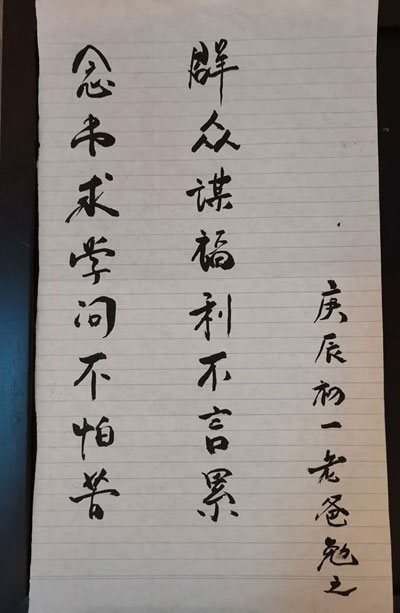 念书求学问不怕苦
群众谋福利不言累
庚辰初一老爸勉之